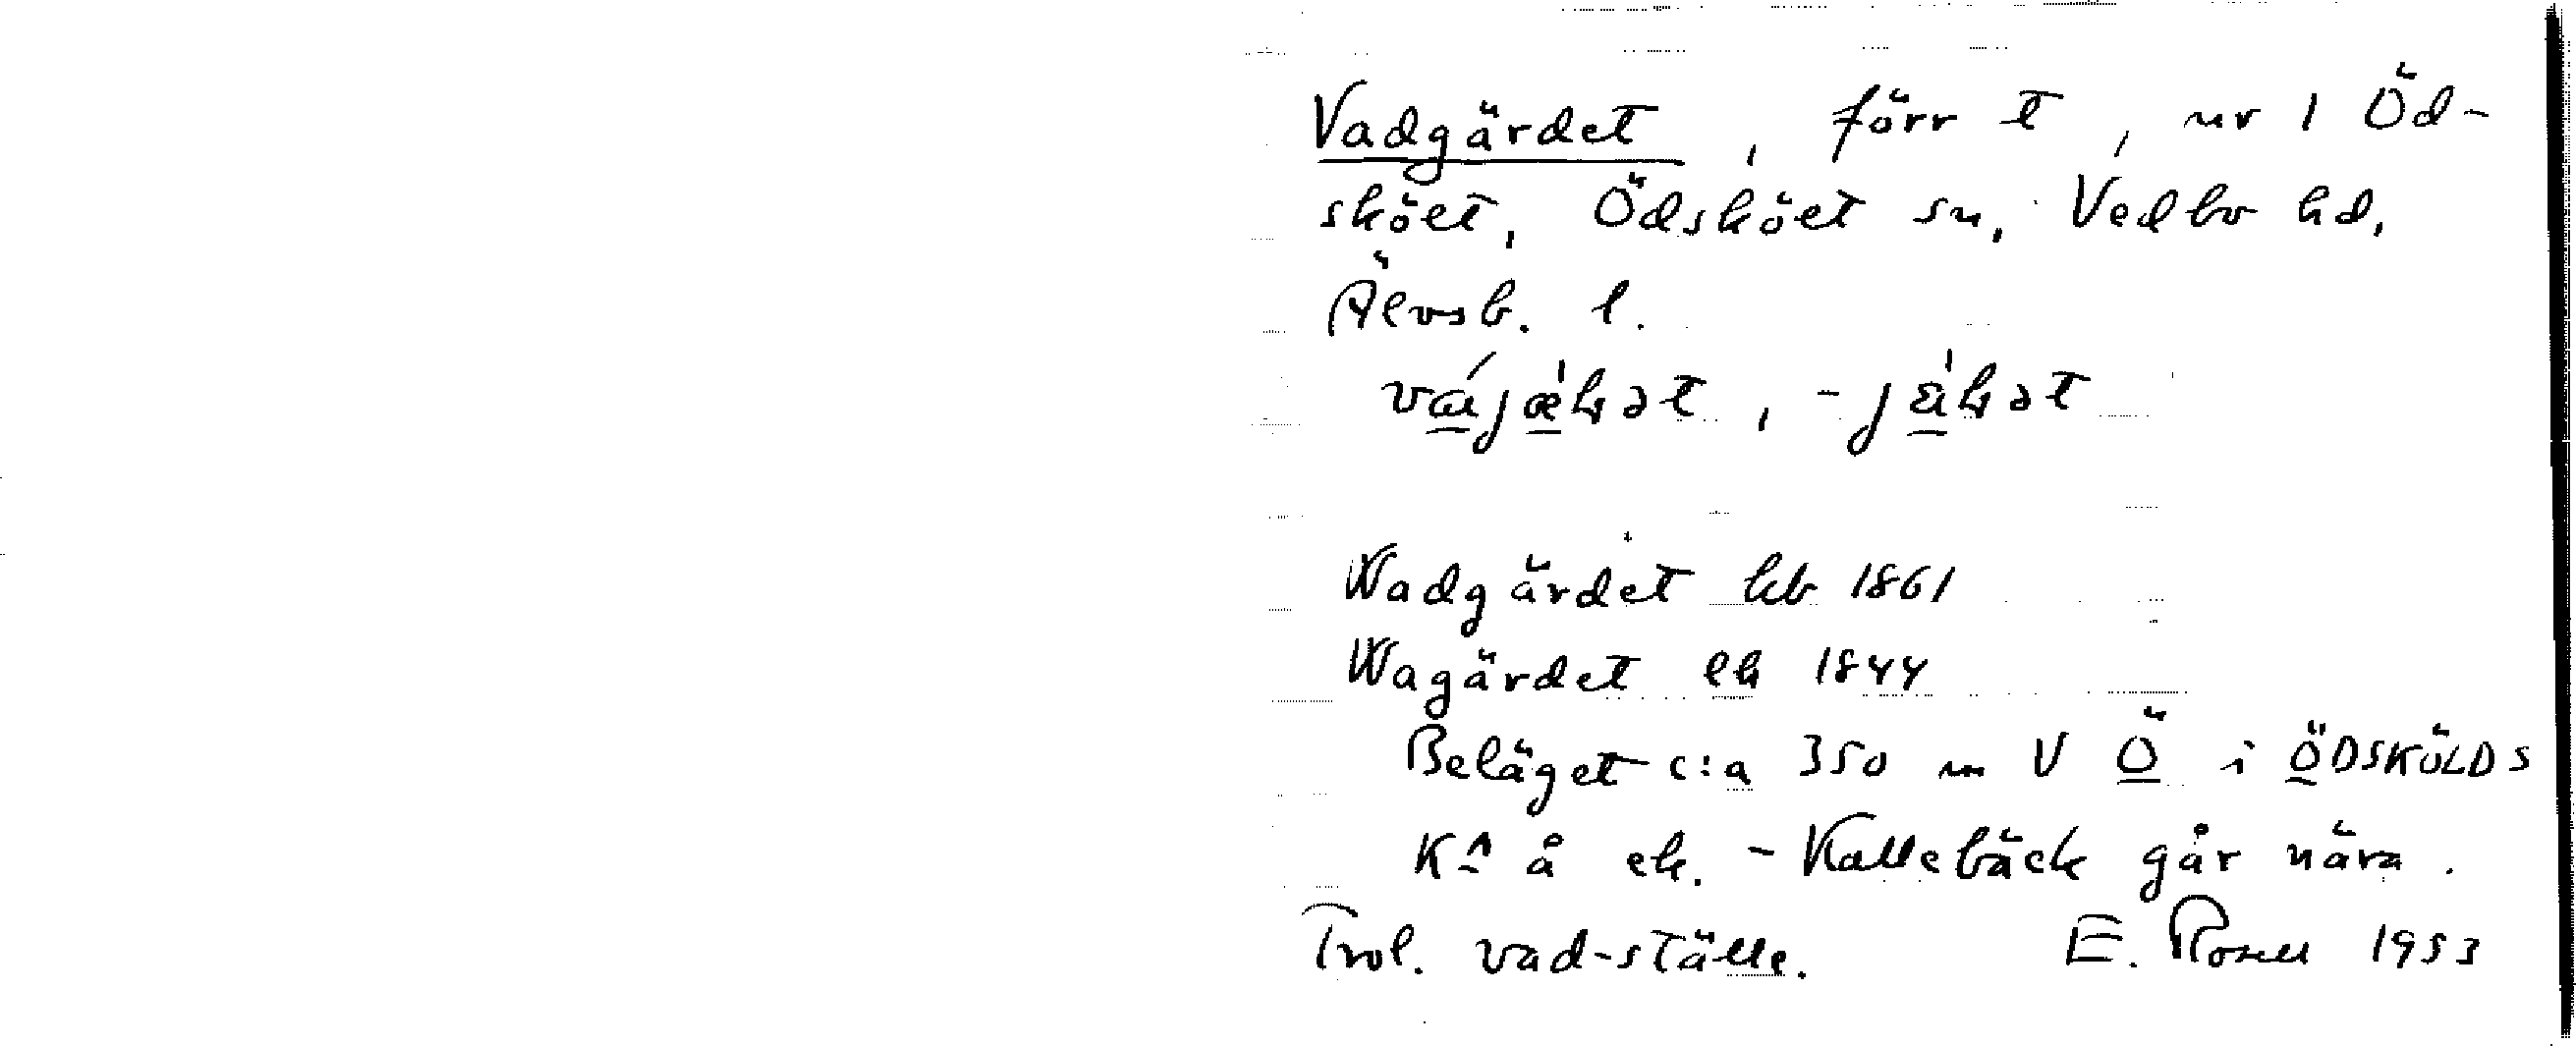 Vadgärdet, förr t, nr 1 Öd-
sköet, Ödsköet sn, Vedbo hd,
Älvsb. l.
Wadgärdet hb 1861
Wagärdet ek 1844
Beläget c:a 350 m V Ö i ÖDSKÖLDS
K:A å ek. - Kallebäck går nära.
Trol. vad-ställe. E. Rosell 1953